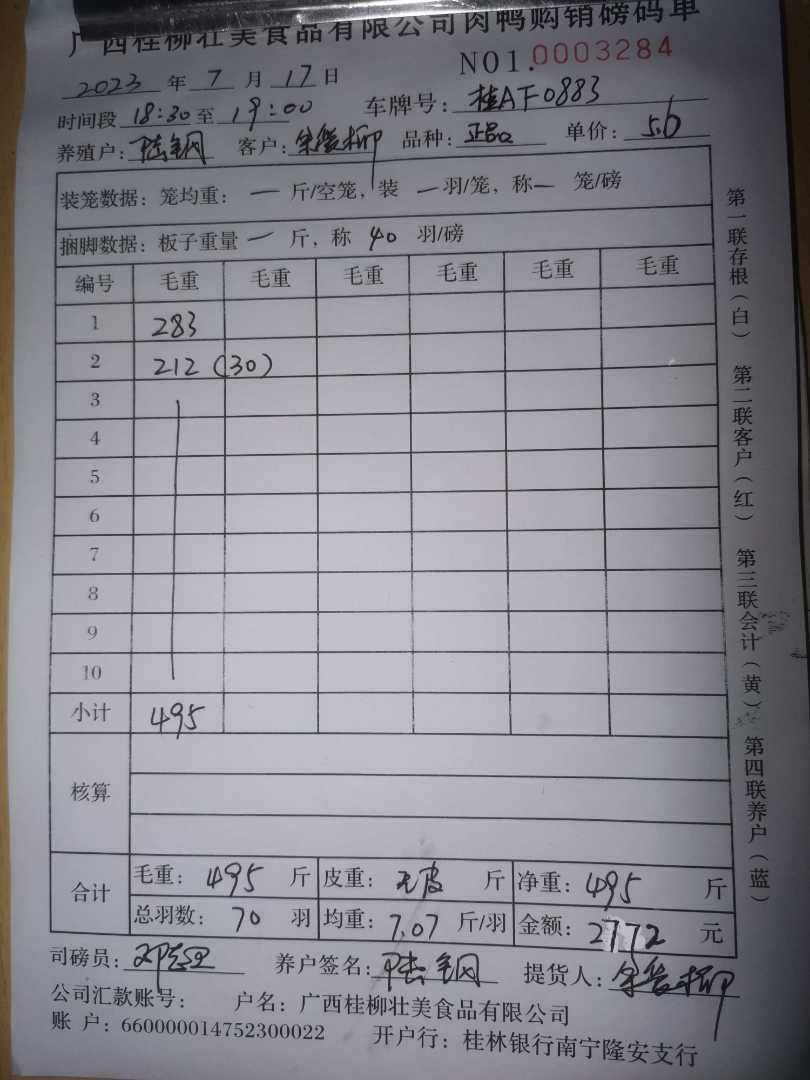 广西桂柳壮美食品有限公司肉鸭购销磅码单
NO1.0003284
2023 年 7 月 17 日
时间段 18:30 至 19:00 车牌号: 桂AF0883
养殖户: 陆钢 客户: 柳 品种: 正品 单价: 5.6
装笼数据: 笼均重: 一 斤/空笼, 装 一 羽/笼, 称 一 笼/磅
捆脚数据: 板子重量 一 斤, 称 40 羽/磅
编号 毛重 毛重 毛重 毛重 毛重 毛重
1 283
2 212 (30)
3
4
5
6
7
8
9
10
小计 495
核算
合计 毛重: 495 斤 皮重: 无皮 斤 净重: 495 斤
总羽数: 70 羽 均重: 7.07 斤/羽 金额: 2772 元
司磅员: 邓 养户签名: 陆钢 提货人: 柳
公司汇款账号: 户名: 广西桂柳壮美食品有限公司
账 户: 660000014752300022 开户行: 桂林银行南宁隆安支行
第一联存根(白) 第二联客户(红) 第三联会计(黄) 第四联养户(蓝)